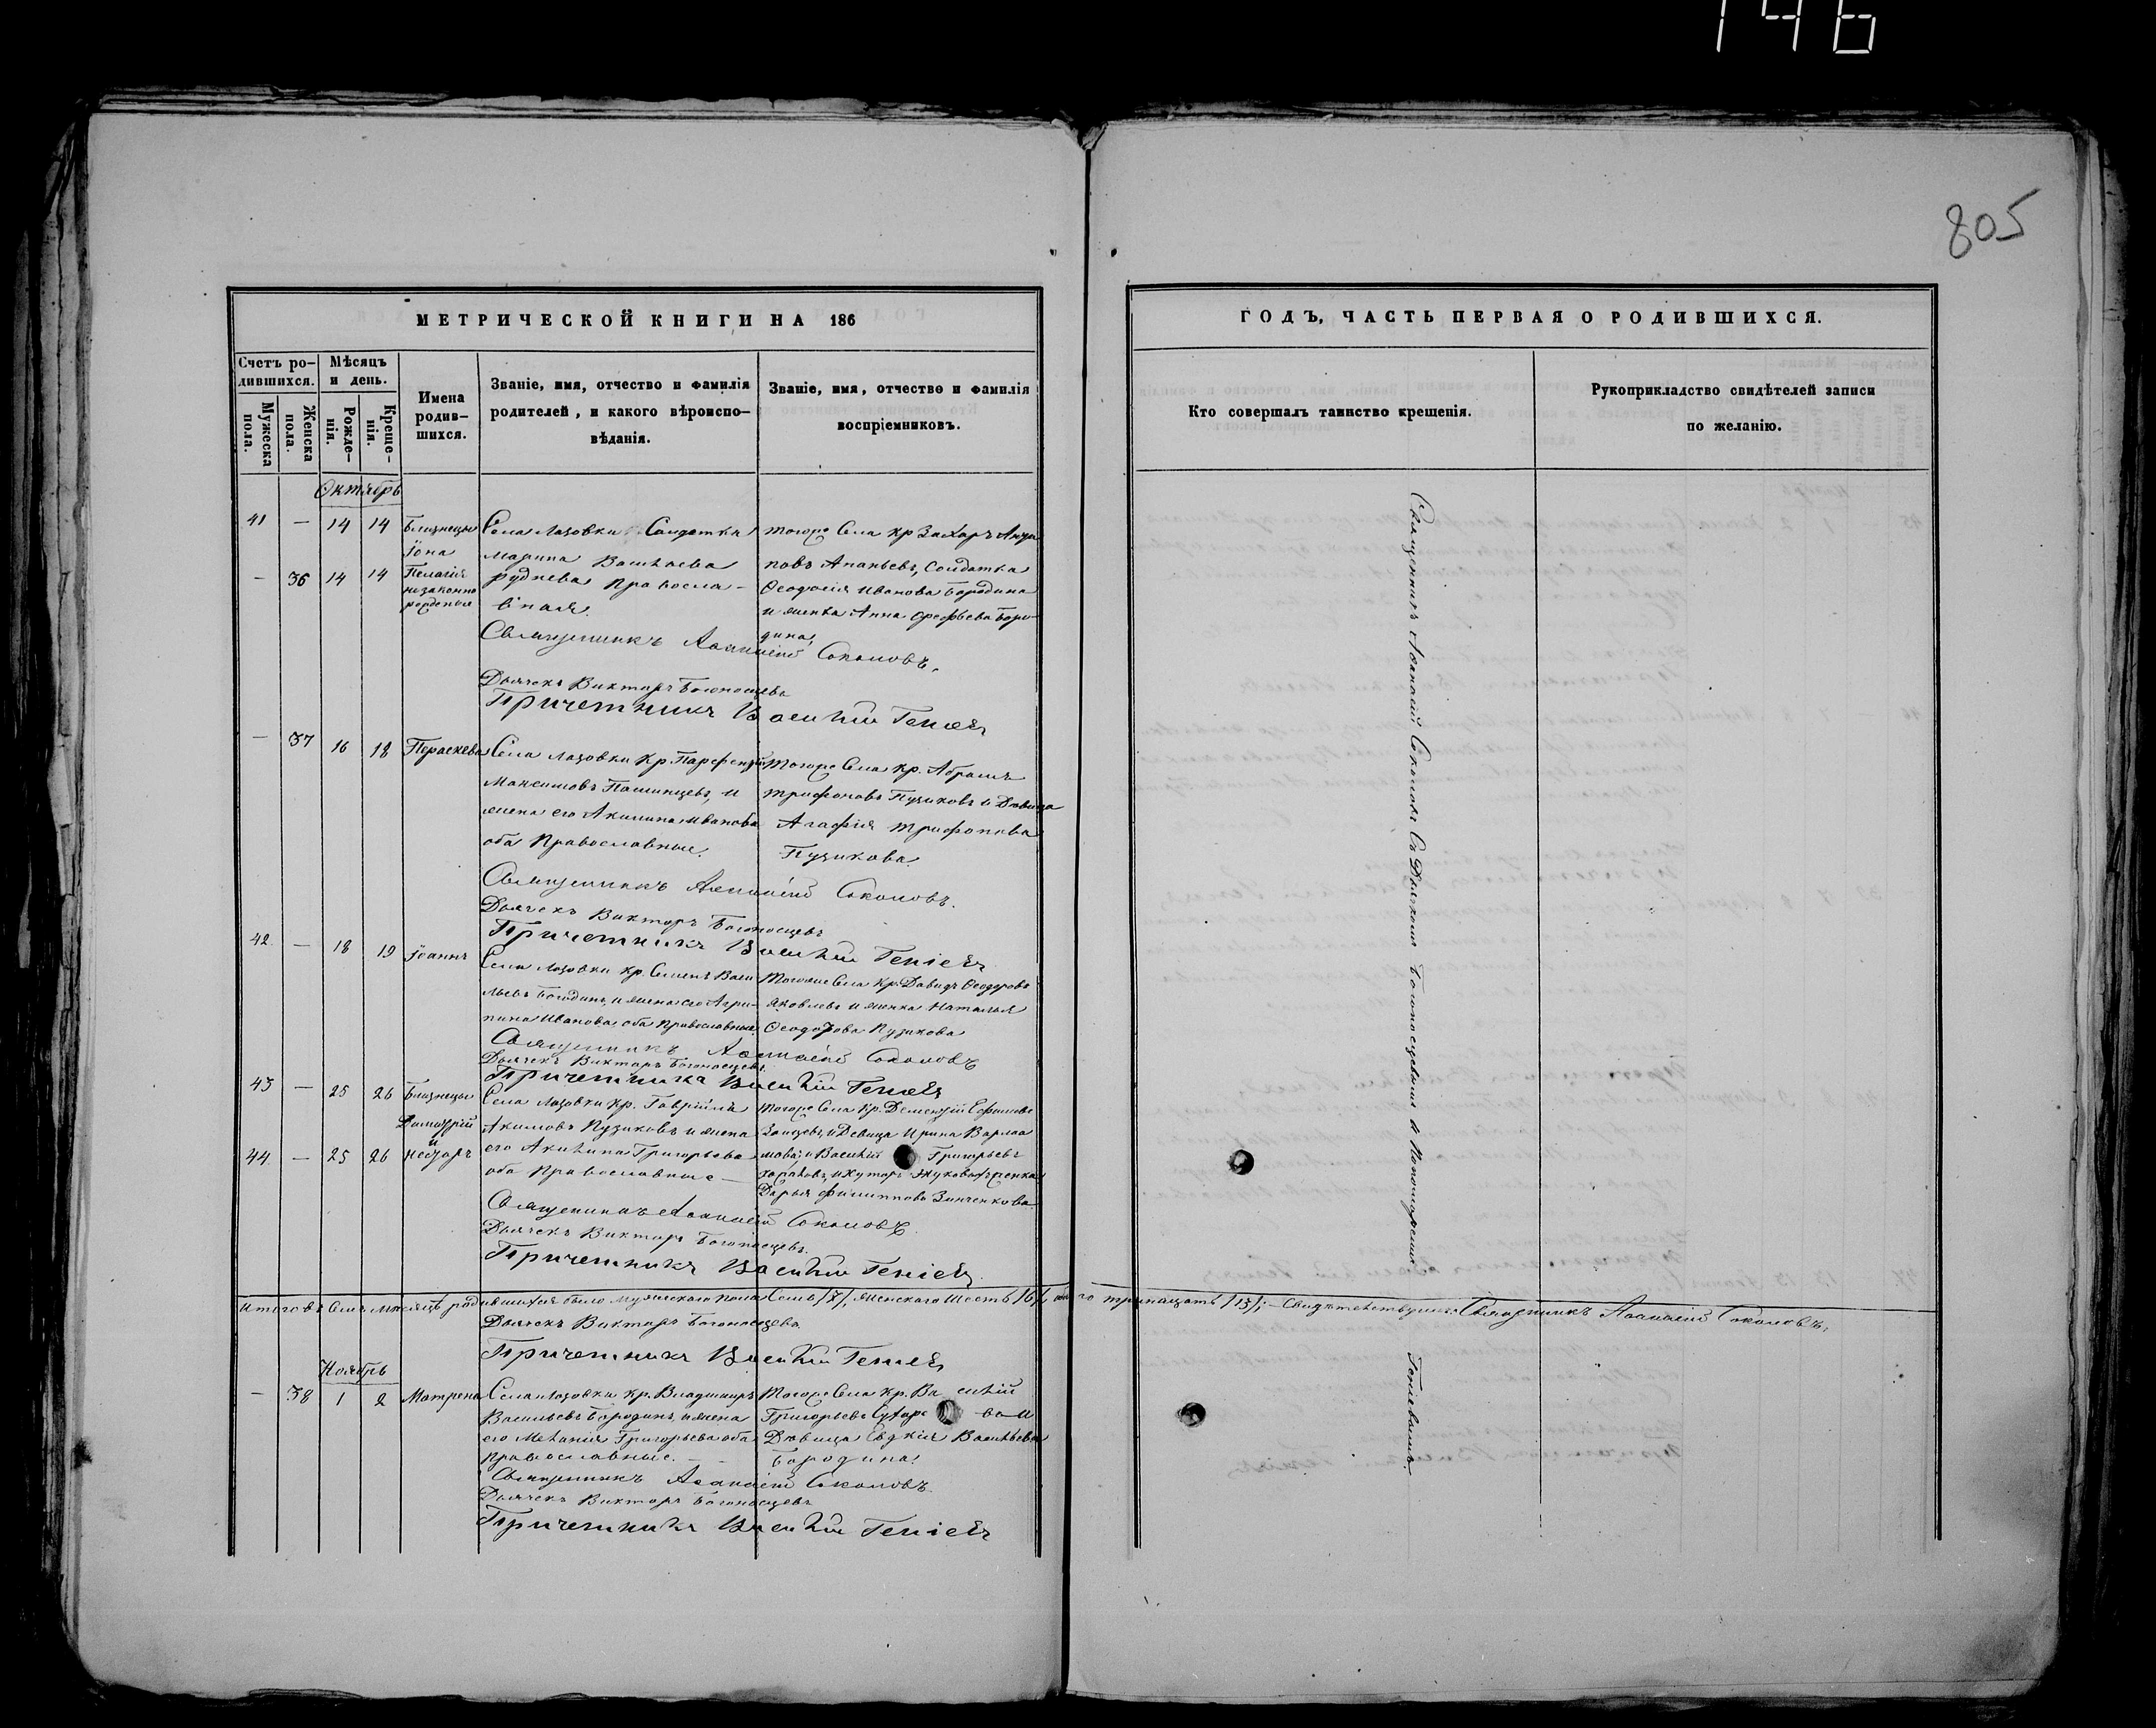 146
805
МЕТРИЧЕСКОЙ КНИГИ НА 186
ГОДЪ, ЧАСТЬ ПЕРВАЯ О РОДИВШИХСЯ.
Счетъ ро-
дившихся.
Мѣсяцъ
и день.
Мужеска
пола.
Женска
пола.
Рожде-
нія.
Креще-
нія.
Имена
родив-
шихся.
Званіе, имя, отчество и фамилія
родителей, и какого вѣроиспо-
вѣданія.
Званіе, имя, отчество и фамилія
воспріемниковъ.
Кто совершалъ таинство крещенія.
Рукоприкладство свидѣтелей записи
по желанію.
Октябрь
41 — 14 14 Близнецы
Іона
— 36 14 14 Пелагія
незаконно
рожденые
Села Лазовки Солдатка
Марина Васильева
Руднева Правосла-
вная.
тогоже Села кр Захаръ
Ананьевъ, Солдатка
Ѳеодосія Иванова Бородина
и женка Анна Бори-
дина,
Священникъ Аѳанасій Соколовъ.
Дьячекъ Викторъ Богоносцевъ
Причетникъ Василій Геніевъ
— 37 16 18 Параскева
Села Лазовки Кр. Парфентій
Максимовъ и
жена его Акилина Иванова
оба Православные.
Тогоже Села Кр. Абрамъ
Трифоновъ Пузиковъ и Дѣвица
Агафія Трифонова
Пузикова.
Священникъ Аѳанасій Соколовъ.
Дьячекъ Викторъ Богоносцевъ
Причетникъ Василій Геніевъ
42 — 18 19 Іоаннъ
Села Лазовки кр. Семенъ Васи-
льевъ Бородинъ, и жена его Агри-
пина Иванова оба Православные.
Тогоже Села Кр. Давидъ Ѳеодоровъ
Яковлевъ и женка Наталья
Ѳеодорова Пузикова
Священникъ Аѳанасій Соколовъ
Дьячекъ Викторъ Богоносцевъ
Причетникъ Василій Геніевъ
43 — 25 26 Близнецы
Димитрій
и
44 — 25 26 Несторъ
Села Лазовки Кр. Гавріилъ
Акимовъ Пузиковъ и жена
его Акилина Григорьева
оба Православные —
тогоже Села Кр. Дементій Ефимовъ
и Дѣвица Ирина Варлаа
мова; и Василій Григорьевъ
Дарья Филиппова Зинченкова
Священникъ Аѳанасій Соколовъ
Дьячекъ Викторъ Богоносцевъ.
Причетникъ Василій Геніевъ
Итого въ семъ мѣсяцѣ родившихся было мужескаго пола Семь /7/, женскаго шесть /6/, тринацать /13/; — Священникъ Аѳанасій Соколовъ.
Дьячекъ Викторъ Богоносцевъ
Причетникъ Василій Геніевъ
Ноябрь
— 38 1 2 Матрена
Села Лазовки Кр. Владиміръ
Васильевъ Бородинъ, и жена
его Меланія Григорьева оба
Православные. —
Тогоже Села Кр. Василій
Григорьевъ и
Дѣвица Васильева
Бородина.
Священникъ Аѳанасій Соколовъ
Дьячекъ Викторъ Богоносцевъ
Причетникъ Василій Геніевъ
Священникъ Аѳанасій Соколовъ Съ Дьячкомъ Богоносцевымъ и Пономаремъ Геніевымъ